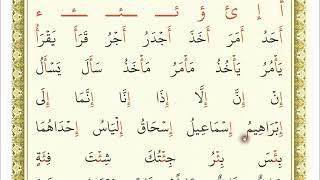 أ إ ئ ؤ ئـ ـئـ ـئـ ء
أَحَدُ أَمَرَ أَخَذَ أَجْدَرُ أَجْرُ قَرَأَ يَقْرَأُ
يَأْمُرُ يَأْخُذُ مَأْمَرُ مَأْخَذُ سَأَلَ يَسْأَلُ
إِنَ إِنَّ إِلَّا إِذَا إِنَّا إِنَّمَا إِلَى
إِبْرَاهِيمُ إِسْمَاعِيلُ إِسْحَاقُ إِلْيَاسُ إِحْدَاهُمَا
بِئْسَ بِئْرُ جِئْتُكَ شِئْتَ فِئَةٍ